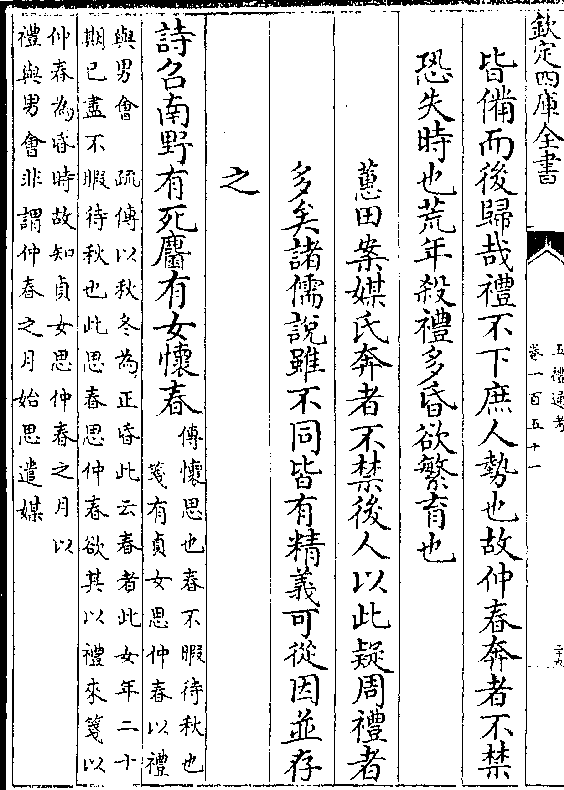 欽定四庫全書
五禮通考
卷一百五十一
二十九
皆備而後歸哉禮不下庶人勢也故仲春奔者不禁
恐失時也荒年殺禮多昏欲繁育也
蕙田案媒氏奔者不禁後人以此疑周禮者
多矣諸儒說雖不同皆有精義可從因並存
之
詩召南野有死麕有女懷春
傳懷思也春不暇待秋也
箋有貞女思仲春以禮
與男會 疏傳以秋冬為正昏此云春者此女年二十
期已盡不暇待秋也此思春思仲春欲其以禮來箋以
仲春為昏時故知貞女思仲春之月以
禮與男會非謂仲春之月始思遣媒